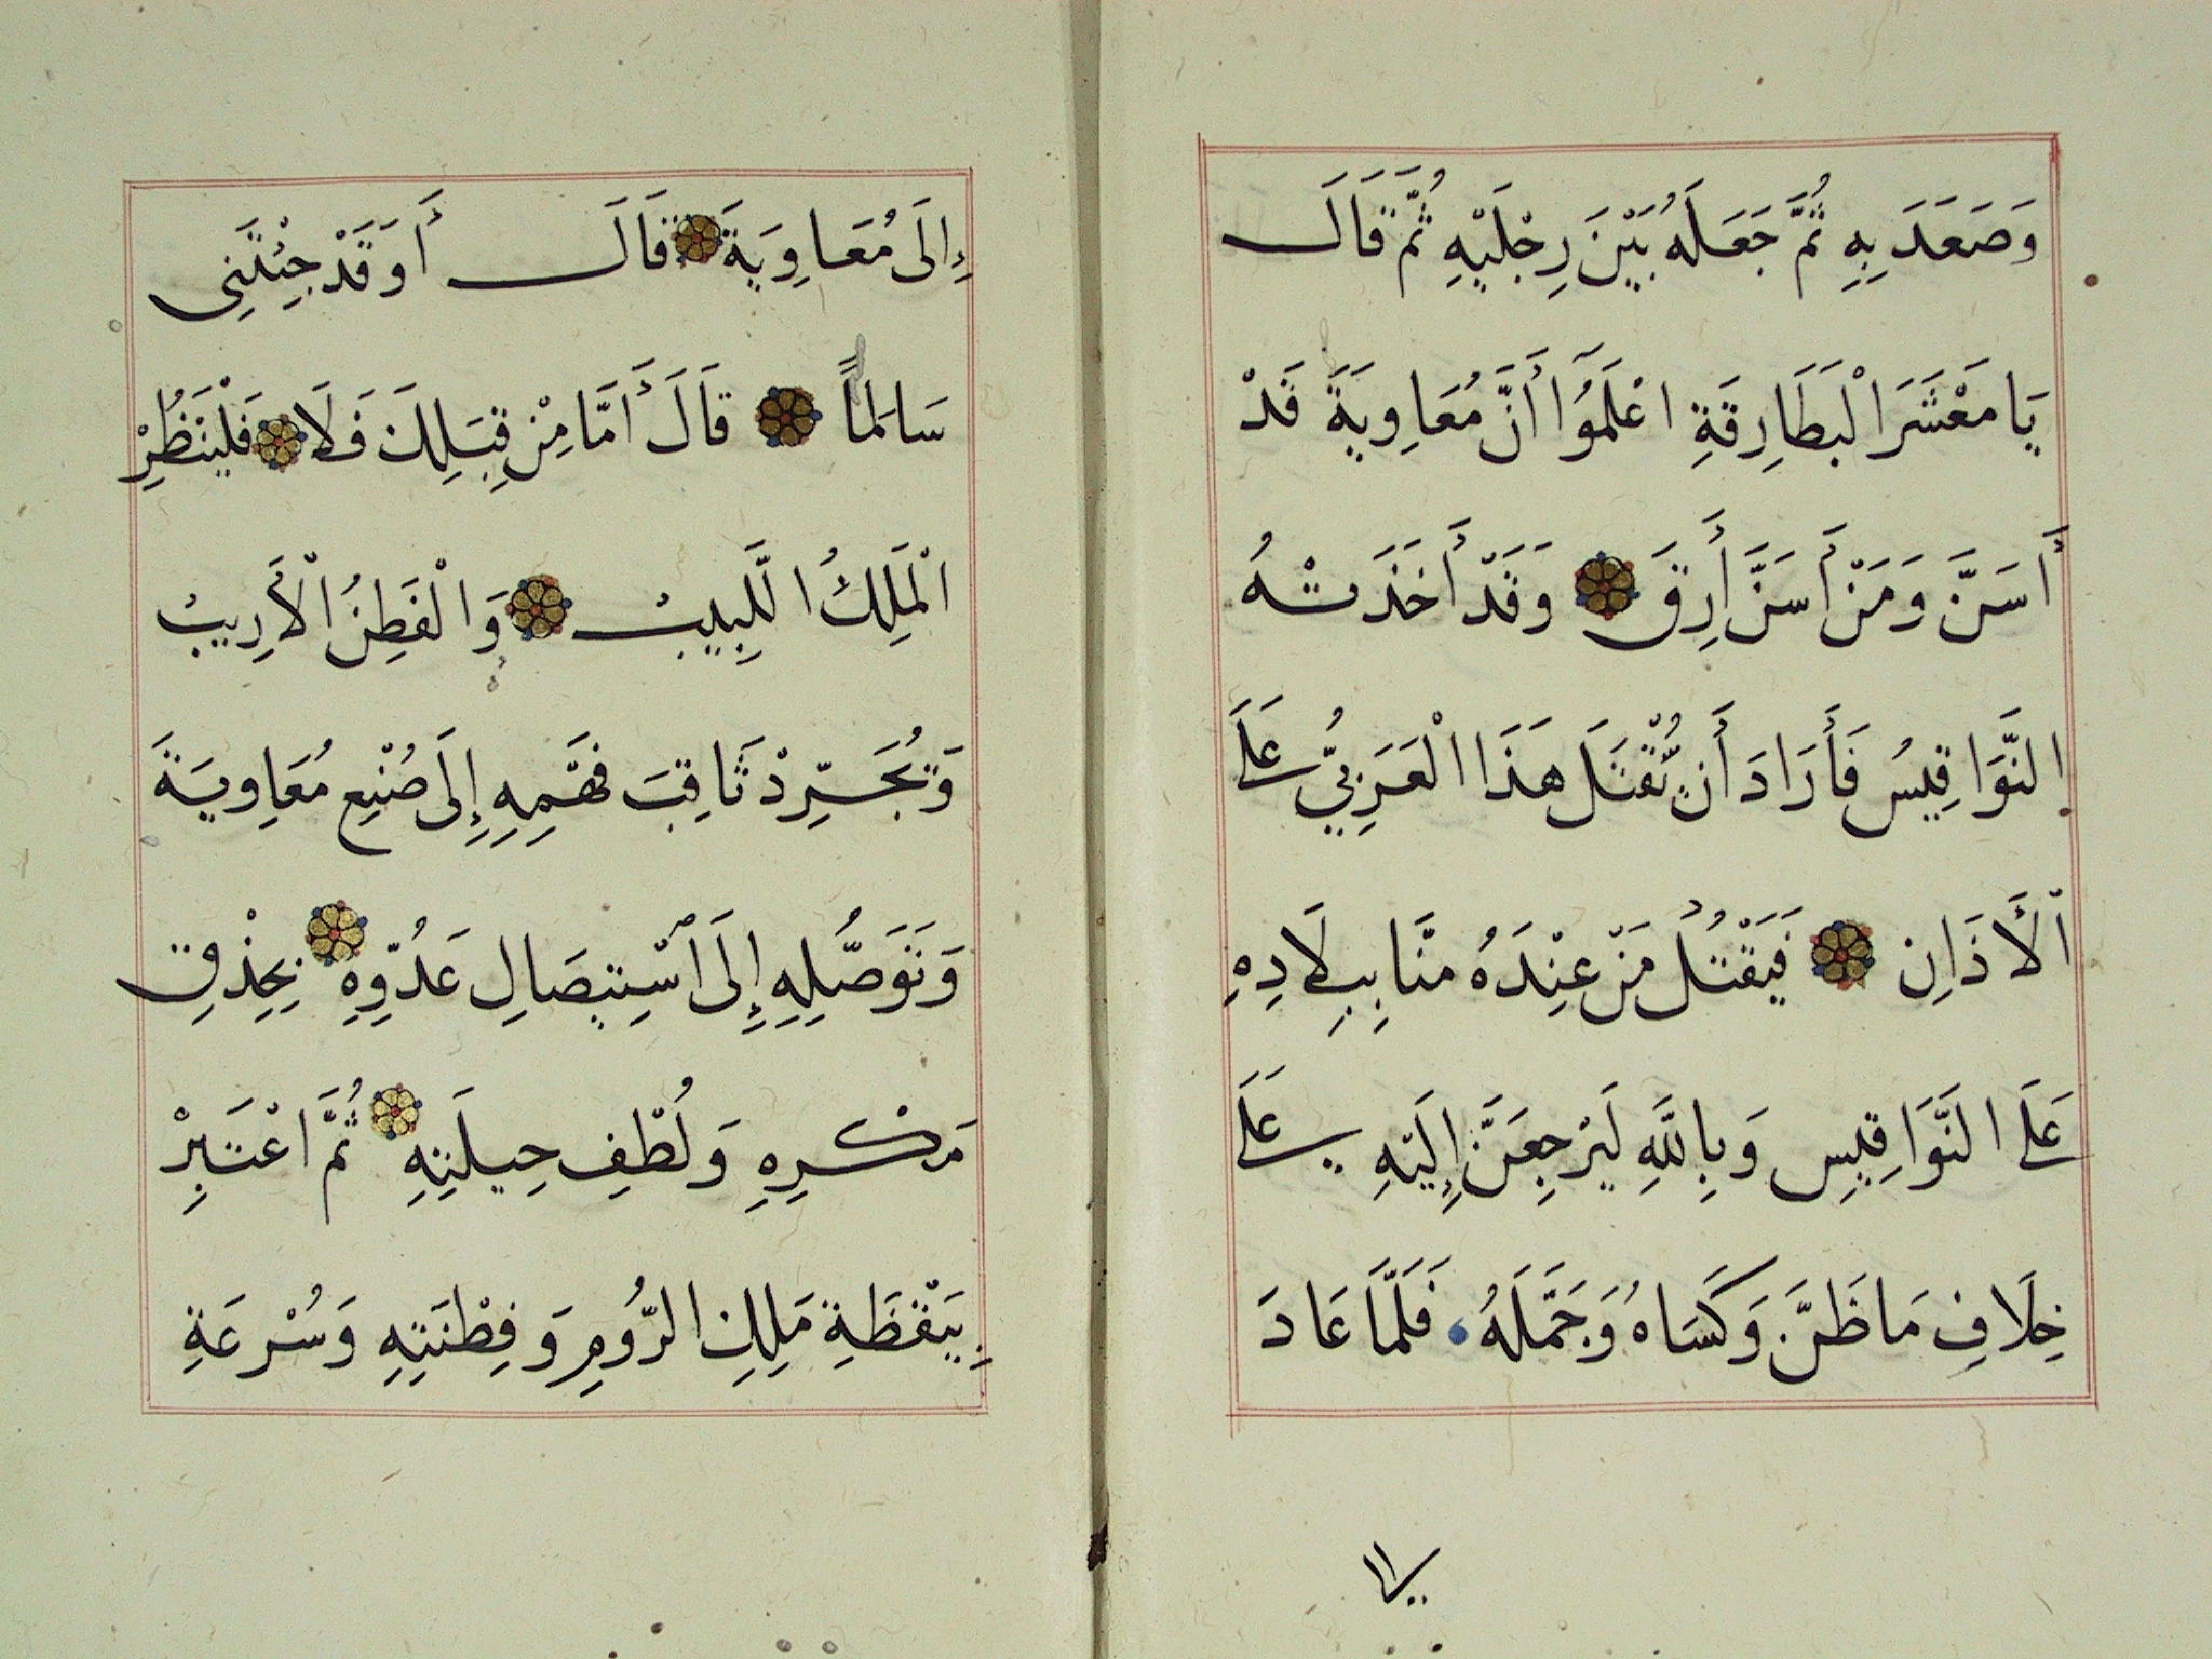 وَصَعَدَ بِهِ ثُمَّ جَعَلَهُ بَيْنَ رِجْلَيْهِ ثُمَّ قَالَ
يَا مَعْشَرَ الْبَطَارِقَةِ اعْلَمُوا أَنَّ مُعَاوِيَةَ قَدْ
أَسَنَّ وَمَنْ أَسَنَّ أَرِقَ وَقَدْ أَخَذَتْهُ
النَّوَاقِيسُ فَأَرَادَ أَنْ يُقْتَلَ هَذَا الْعَرَبِيُّ عَلَى
الْأَذَانِ فَيَقْتُلُ مَنْ عِنْدَهُ مِنَّا بِبِلَادِهِ
عَلَى النَّوَاقِيسِ وَبِاللَّهِ لَيَرْجِعَنَّ إِلَيْهِ عَلَى
خِلَافِ مَا ظَنَّ وَكَسَاهُ وَحَمَّلَهُ فَلَمَّا عَادَ
إِلَى
إِلَى مُعَاوِيَةَ قَالَ أَوَقَدْ جِئْتَنِي
سَالِمًا قَالَ أَمَّا مِنْ قِبَلِكَ فَلَا فَلْيَنْظُرْ
الْمَلِكُ اللَّبِيبُ وَالْفَطِنُ الْأَرِيبُ
وَيُجَرِّدْ ثَاقِبَ فَهْمِهِ إِلَى صُنْعِ مُعَاوِيَةَ
وَتَوَصُّلِهِ إِلَى اسْتِيصَالِ عَدُوِّهِ بِحِذْقِ
مَكْرِهِ وَلُطْفِ حِيلَتِهِ ثُمَّ اعْتَبِرْ
بِيَقْظَةِ مَلِكِ الرُّومِ وَفِطْنَتِهِ وَسُرْعَةِ